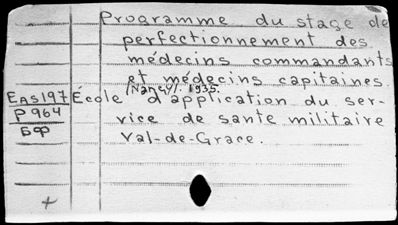 Programme du stage de
perfectionnement des
médecins commandants
et médecins capitaines.
(Nancy). 1935.
EAS197 École d'application du ser-
P964 vice de sante militaire
БФ Val-de-Grace.
+